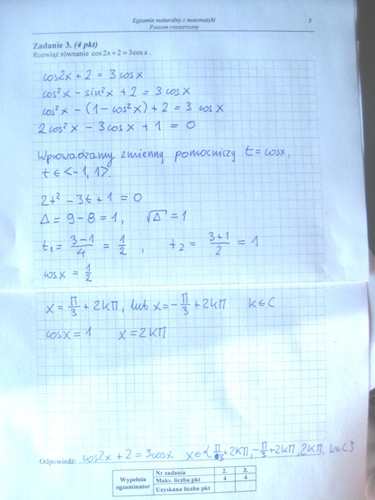 Egzamin maturalny z matematyki
Poziom rozszerzony
5
Zadanie 3. (4 pkt)
Rozwiąż równanie cos2x + 2 = 3cosx.
cos2x + 2 = 3 cosx
cos²x − sin²x + 2 = 3 cosx
cos²x − (1 − cos²x) + 2 = 3 cosx
2cos²x − 3cosx + 1 = 0
Wprowadzamy zmienną pomocniczą t = cosx,
t ∈ <−1, 1>.
2t² − 3t + 1 = 0
Δ = 9 − 8 = 1, √Δ = 1
t₁ = (3−1)/4 = 1/2, t₂ = (3+1)/2 = 1
cosx = 1/2
x = Π/3 + 2kΠ, lub x = −Π/3 + 2kΠ k∈C
cosx = 1 x = 2kΠ
Odpowiedź: cos2x + 2 = 3cosx x∈{Π/3 + 2kΠ, −Π/3 + 2kΠ, 2kΠ, k∈C}
Wypełnia egzaminator Nr zadania 2. 3.
Maks. liczba pkt 4 4
Uzyskana liczba pkt